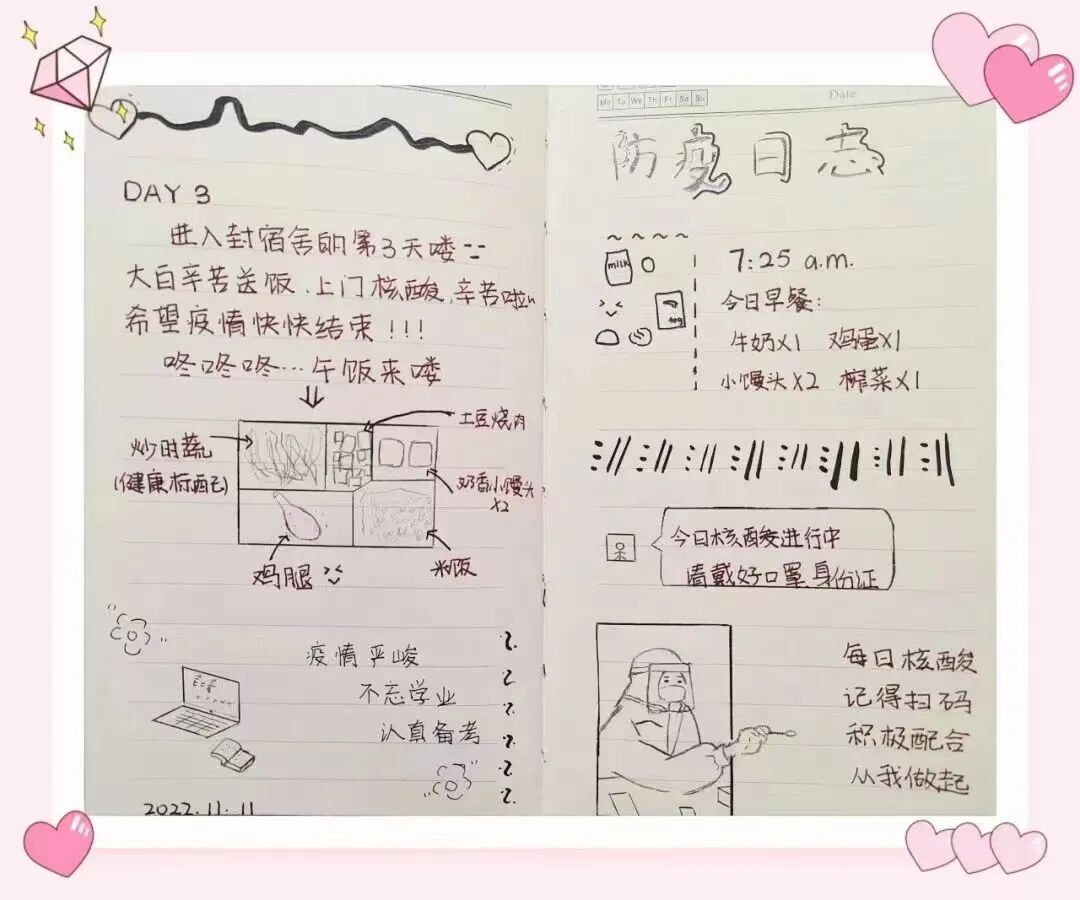 DAY 3
进入封宿舍的第3天喽
大白辛苦送饭、上门核酸,辛苦啦~
希望疫情快快结束!!!
咚咚咚…午饭来喽
炒时蔬
(健康标配)
土豆烧肉
奶香小馒头
X2
鸡腿
米饭
疫情严峻
不忘学业
认真备考
2022.11.11
Mn Tu We Th Fr Sa Su
Date
防疫日志
milk
7:25 a.m.
今日早餐:
牛奶X1 鸡蛋X1
小馒头X2 榨菜X1
今日核酸进行中
请戴好口罩 身份证
每日核酸
记得扫码
积极配合
从我做起